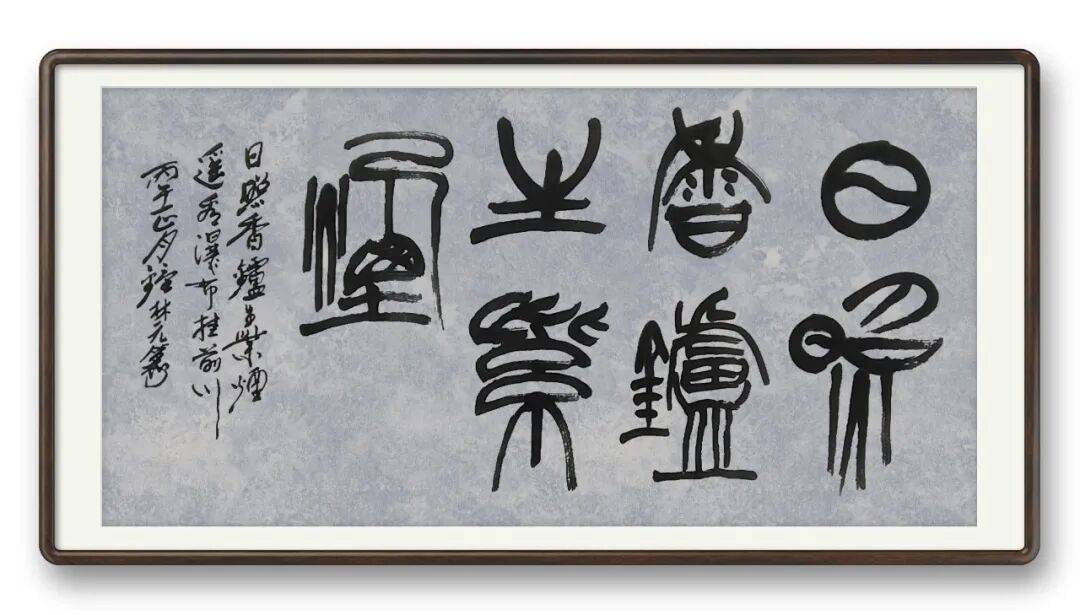 日照
香鑪
生紫
煙
日照香鑪生紫煙
遥看瀑布挂前川
丙午正月 林元